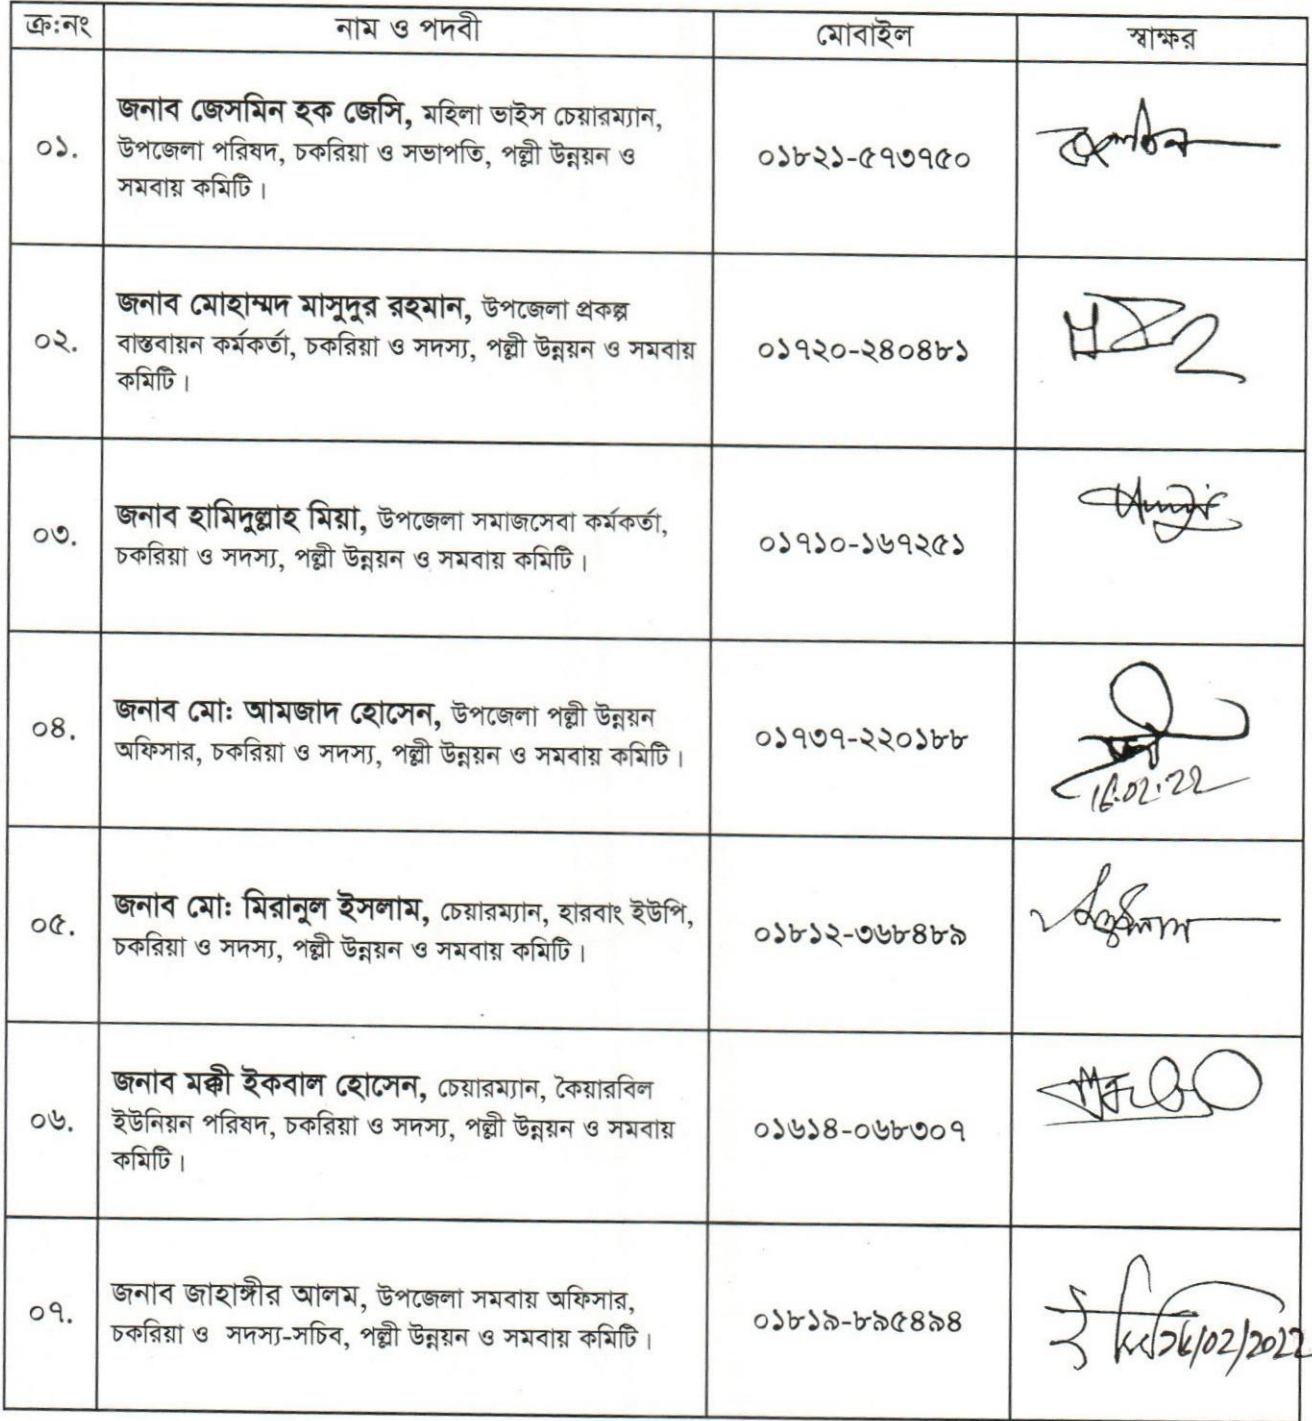 ক্র:নং নাম ও পদবী মোবাইল স্বাক্ষর
জনাব জেসমিন হক জেসি, মহিলা ভাইস চেয়ারম্যান,
০১. উপজেলা পরিষদ, চকরিয়া ও সভাপতি, পল্লী উন্নয়ন ও ০১৮২১-৫৭৩৭৫০
সমবায় কমিটি।
জনাব মোহাম্মদ মাসুদুর রহমান, উপজেলা প্রকল্প
০২. বাস্তবায়ন কর্মকর্তা, চকরিয়া ও সদস্য, পল্লী উন্নয়ন ও সমবায় ০১৭২০-২৪০৪৮১
কমিটি।
জনাব হামিদুল্লাহ মিয়া, উপজেলা সমাজসেবা কর্মকর্তা,
০৩. চকরিয়া ও সদস্য, পল্লী উন্নয়ন ও সমবায় কমিটি। ০১৭১০-১৬৭২৫১
জনাব মো: আমজাদ হোসেন, উপজেলা পল্লী উন্নয়ন
০৪. অফিসার, চকরিয়া ও সদস্য, পল্লী উন্নয়ন ও সমবায় কমিটি। ০১৭৩৭-২২০১৮৮
জনাব মো: মিরানুল ইসলাম, চেয়ারম্যান, হারবাং ইউপি,
০৫. চকরিয়া ও সদস্য, পল্লী উন্নয়ন ও সমবায় কমিটি। ০১৮১২-৩৬৮৪৮৯
জনাব মক্কী ইকবাল হোসেন, চেয়ারম্যান, কৈয়ারবিল
০৬. ইউনিয়ন পরিষদ, চকরিয়া ও সদস্য, পল্লী উন্নয়ন ও সমবায় ০১৬১৪-০৬৮৩০৭
কমিটি।
জনাব জাহাঙ্গীর আলম, উপজেলা সমবায় অফিসার,
০৭. চকরিয়া ও সদস্য-সচিব, পল্লী উন্নয়ন ও সমবায় কমিটি। ০১৮১৯-৮৯৫৪৯৪